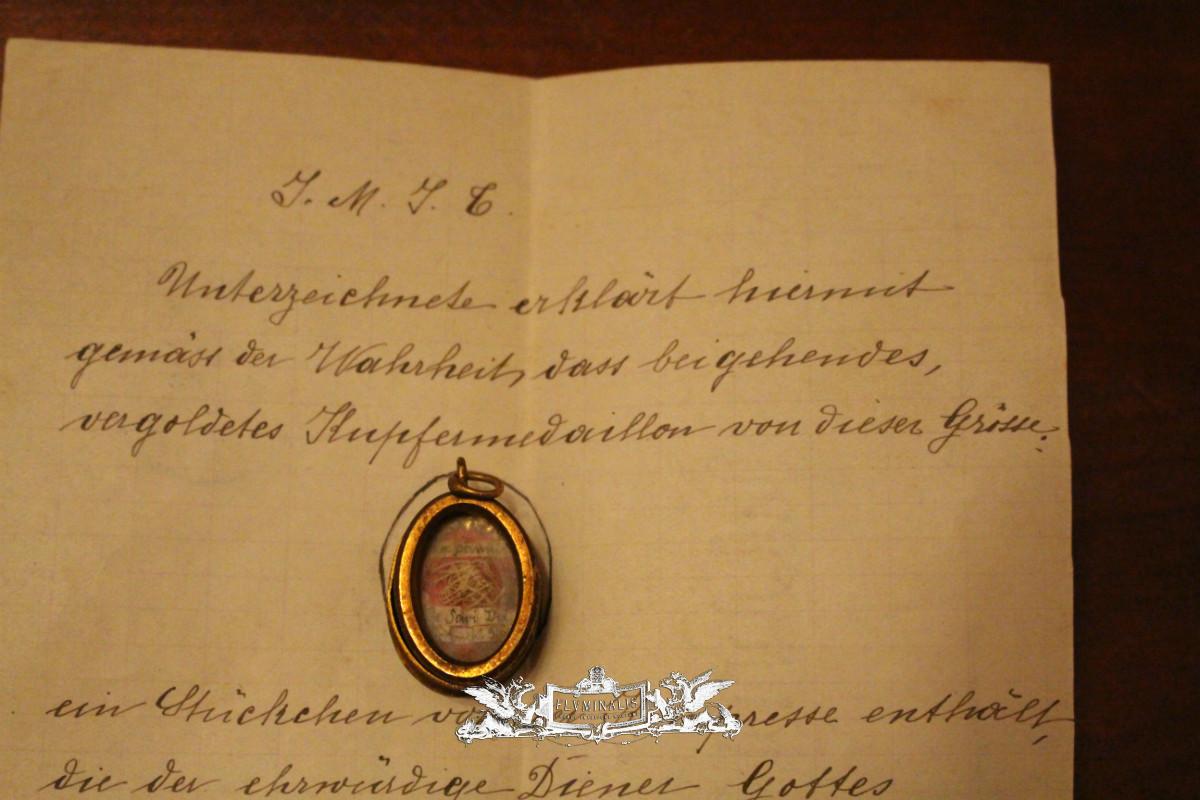 J. M. J. C.
Unterzeichnete erklärt hiermit
gemäss der Wahrheit, dass beigehendes,
vergoldetes Kupfermedaillon von dieser Grösse.
ein Stückchen enthält,
die der ehrwürdige Diener Gottes